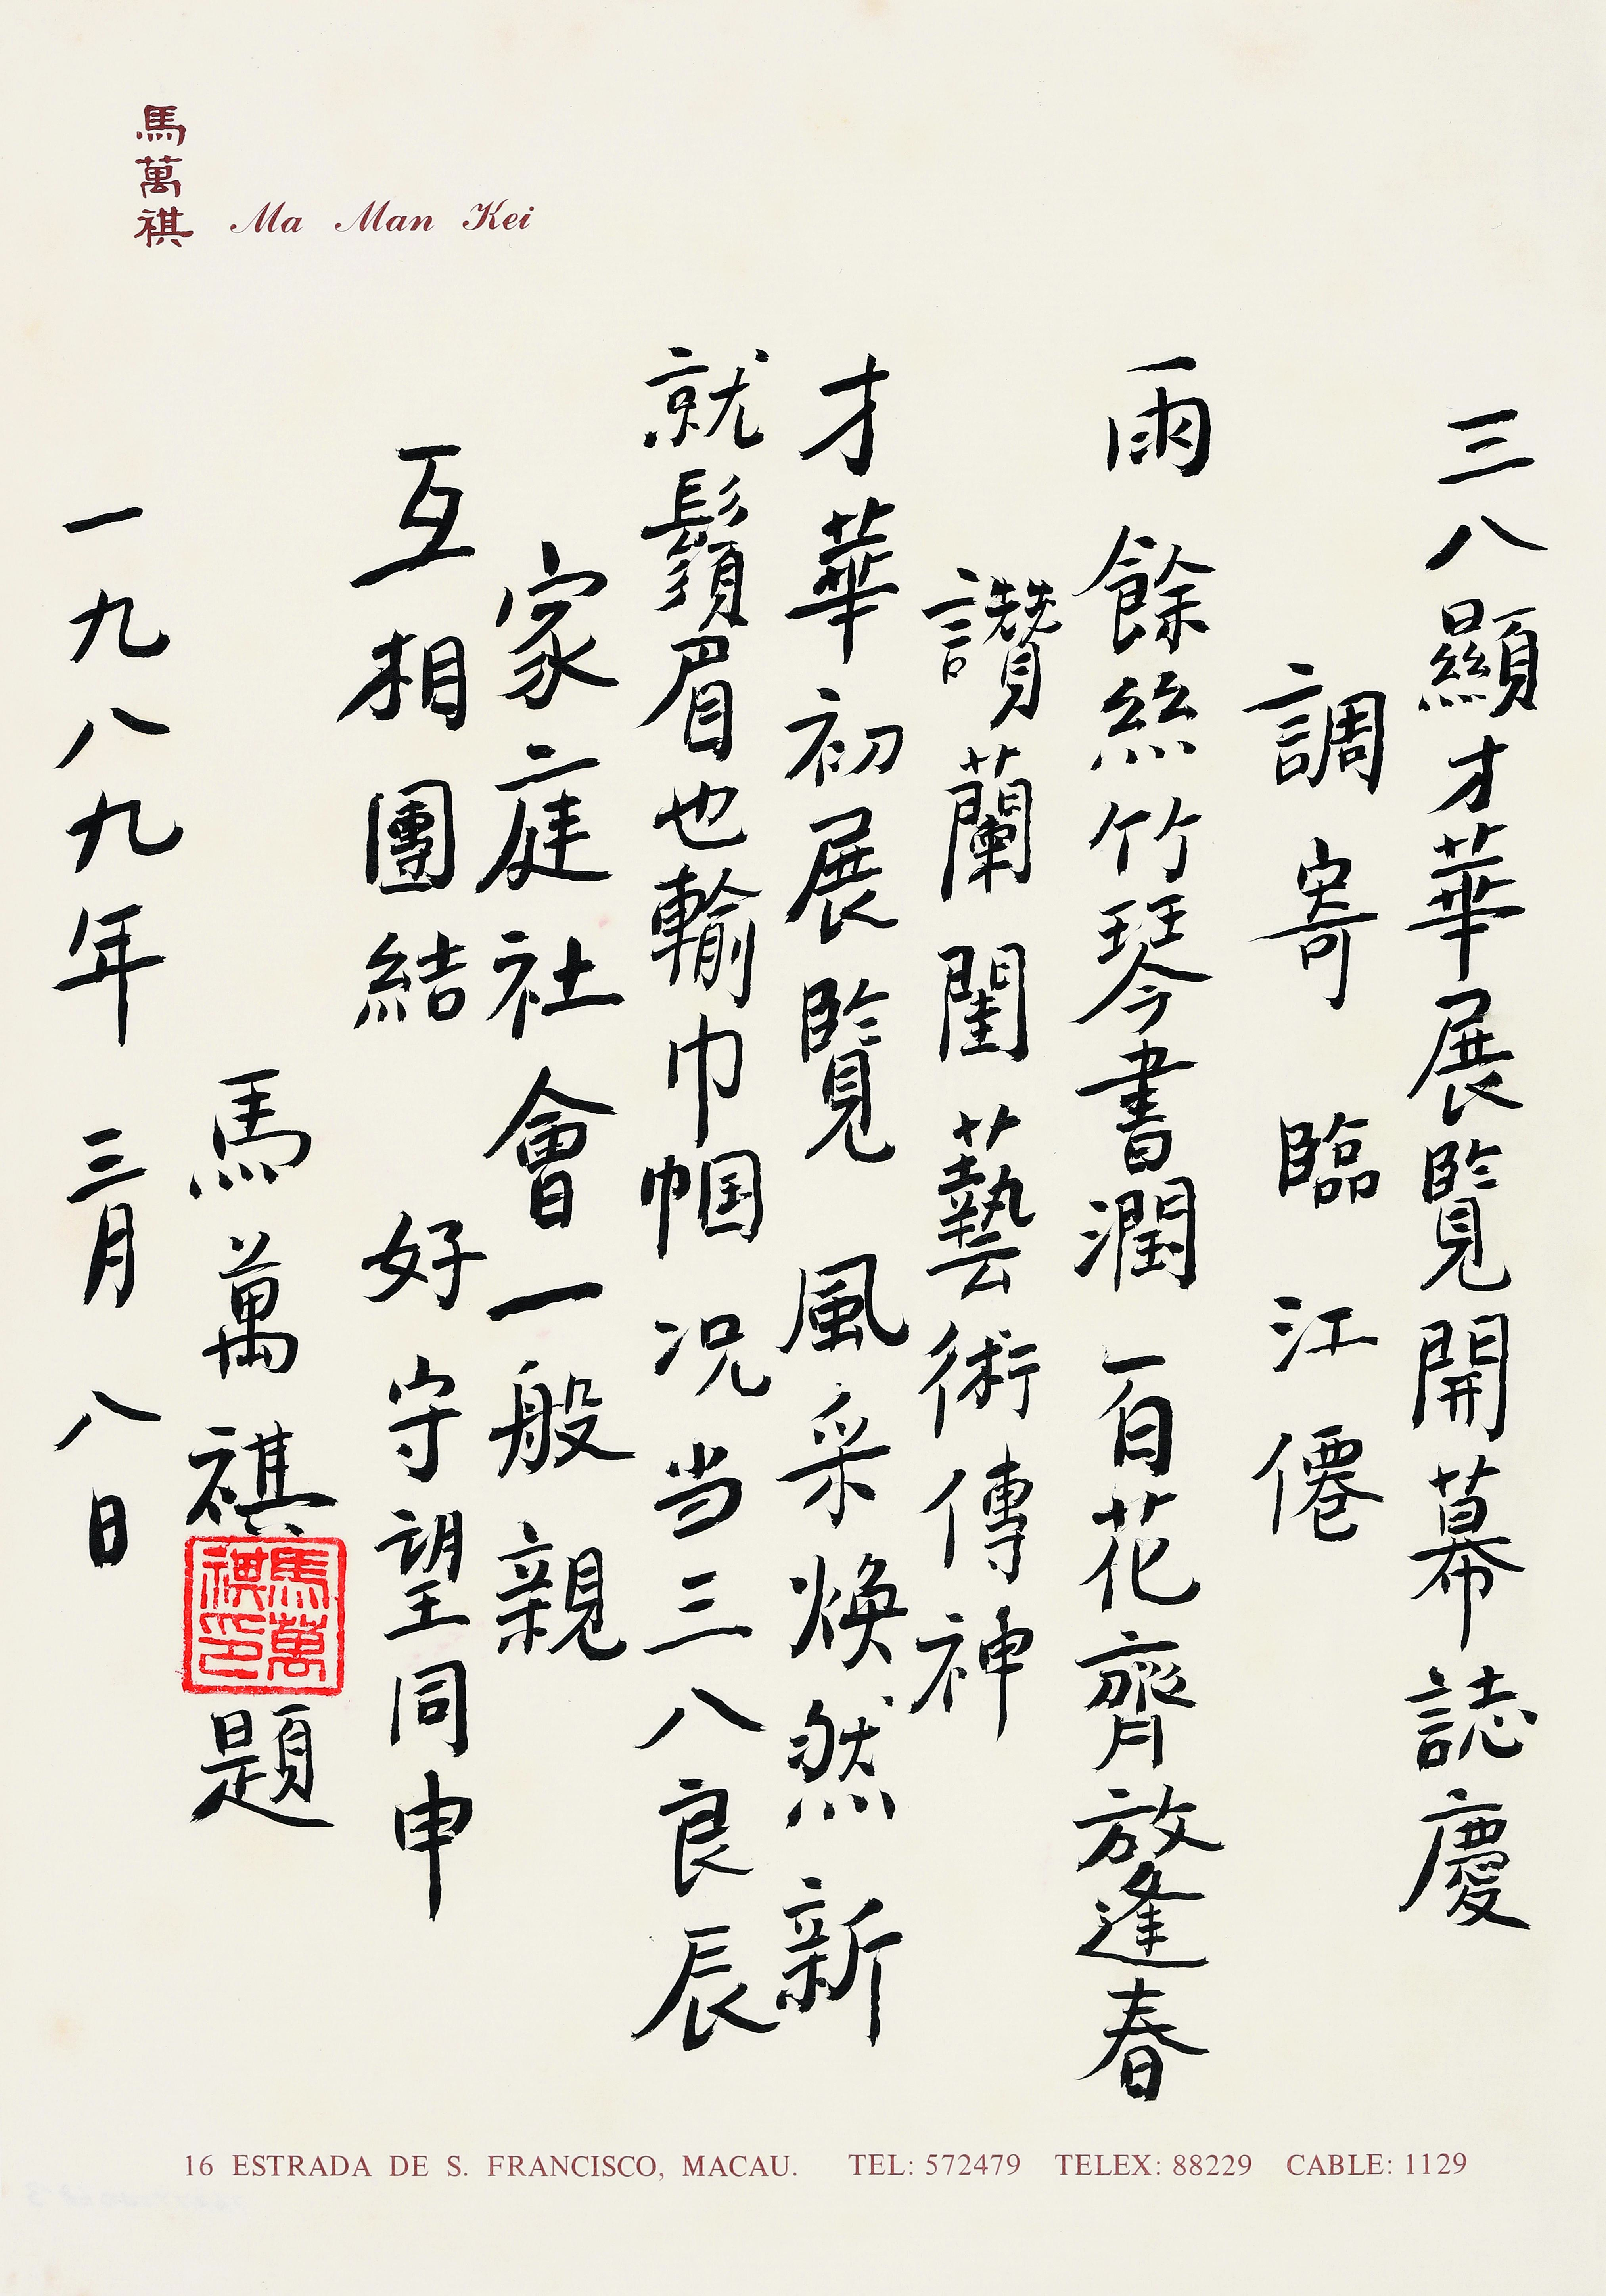 馬萬祺
Ma Man Kei
三八顯才華展覽開幕誌慶
調寄臨江僊
雨餘絲竹琴書潤 百花齊放逢春
讚蘭閨藝術傳神
才華初展覽 風采煥然新
就鬚眉也輸巾帼 况当三八良辰
家庭社會一般親
互相團結好 守望同申
馬萬祺題
馬萬祺印
一九八九年三月八日
16 ESTRADA DE S. FRANCISCO, MACAU. TEL: 572479 TELEX: 88229 CABLE: 1129